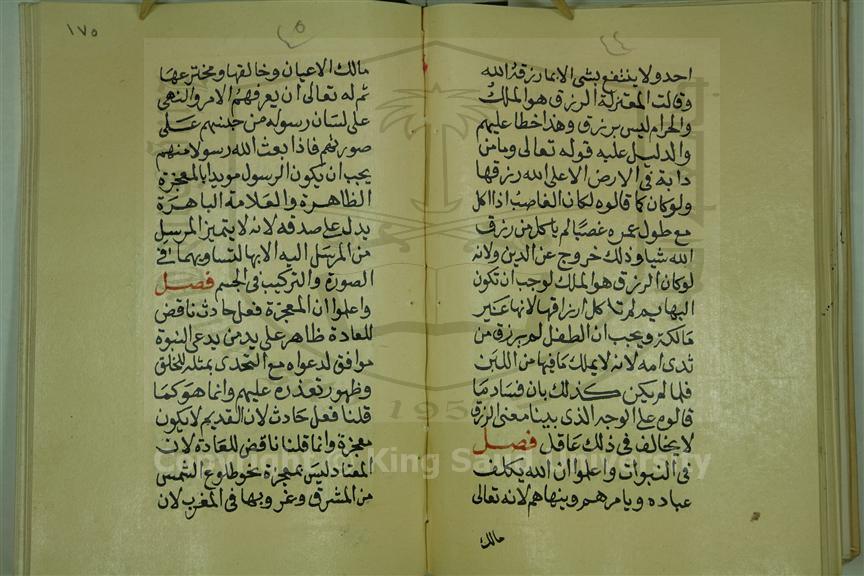 احد ولا ينتفع بشى الا بما رزقه الله
وقالت المعتزلة الرزق هو الملك
والحرام ليس برزق وهذا خطا عليهم
والدليل عليه قوله تعالى وما من
دابة فى الارض الا على الله رزقها
ولو كان كما قالوه لكان الغاصب اذا اكل
مع طول عمره غصبا لم ياكل من رزق
الله شيا وذلك خروج عن الدين ولانه
لو كان الرزق هو الملك لوجب ان تكون
البهايم لم تاكل ارزاقها لانها غير
مالكة ويجب ان الطفل لم يرزق من
ثدى امه لانه لا يملك ما فيها من اللبن
فلما لم يكن كذلك بان فساد ما
قالوه على الوجه الذى بينا معنى الرزق
لا يخالف فى ذلك عاقل فصل
فى النبوات واعلموا ان الله يكلف
عباده ويامرهم وينهاهم لانه تعالى
مالك
١٧٥
مالك الاعيان وخالقها ومخترعها
ثم له تعالى ان يعرفهم الامر والنهى
على لسان رسوله من جنسهم على
صورتهم فاذا بعث الله رسولا منهم
يجب ان يكون الرسول مويدا بالمعجزة
الظاهرة والعلامة الباهرة
يدل على صدقه لانه لا يتميز المرسل
من المرسل اليه الا بها لتساويهما فى
الصورة والتركيب فى الجسم فصل
واعلموا ان المعجزة فعل حادث ناقض
للعادة ظاهر على يد من يدعى النبوة
موافق لدعواه مع التحدى بمثله للخلق
وظهور تعذره عليهم وانما هو كما
قلنا فعل حادث لان القديم لا يكون
معجزة وانما قلنا ناقض للعادة لان
المعتاد ليس بمعجزة نحو طلوع الشمس
من المشرق وغروبها فى المغرب لان
1957
Copyright © King Saud University